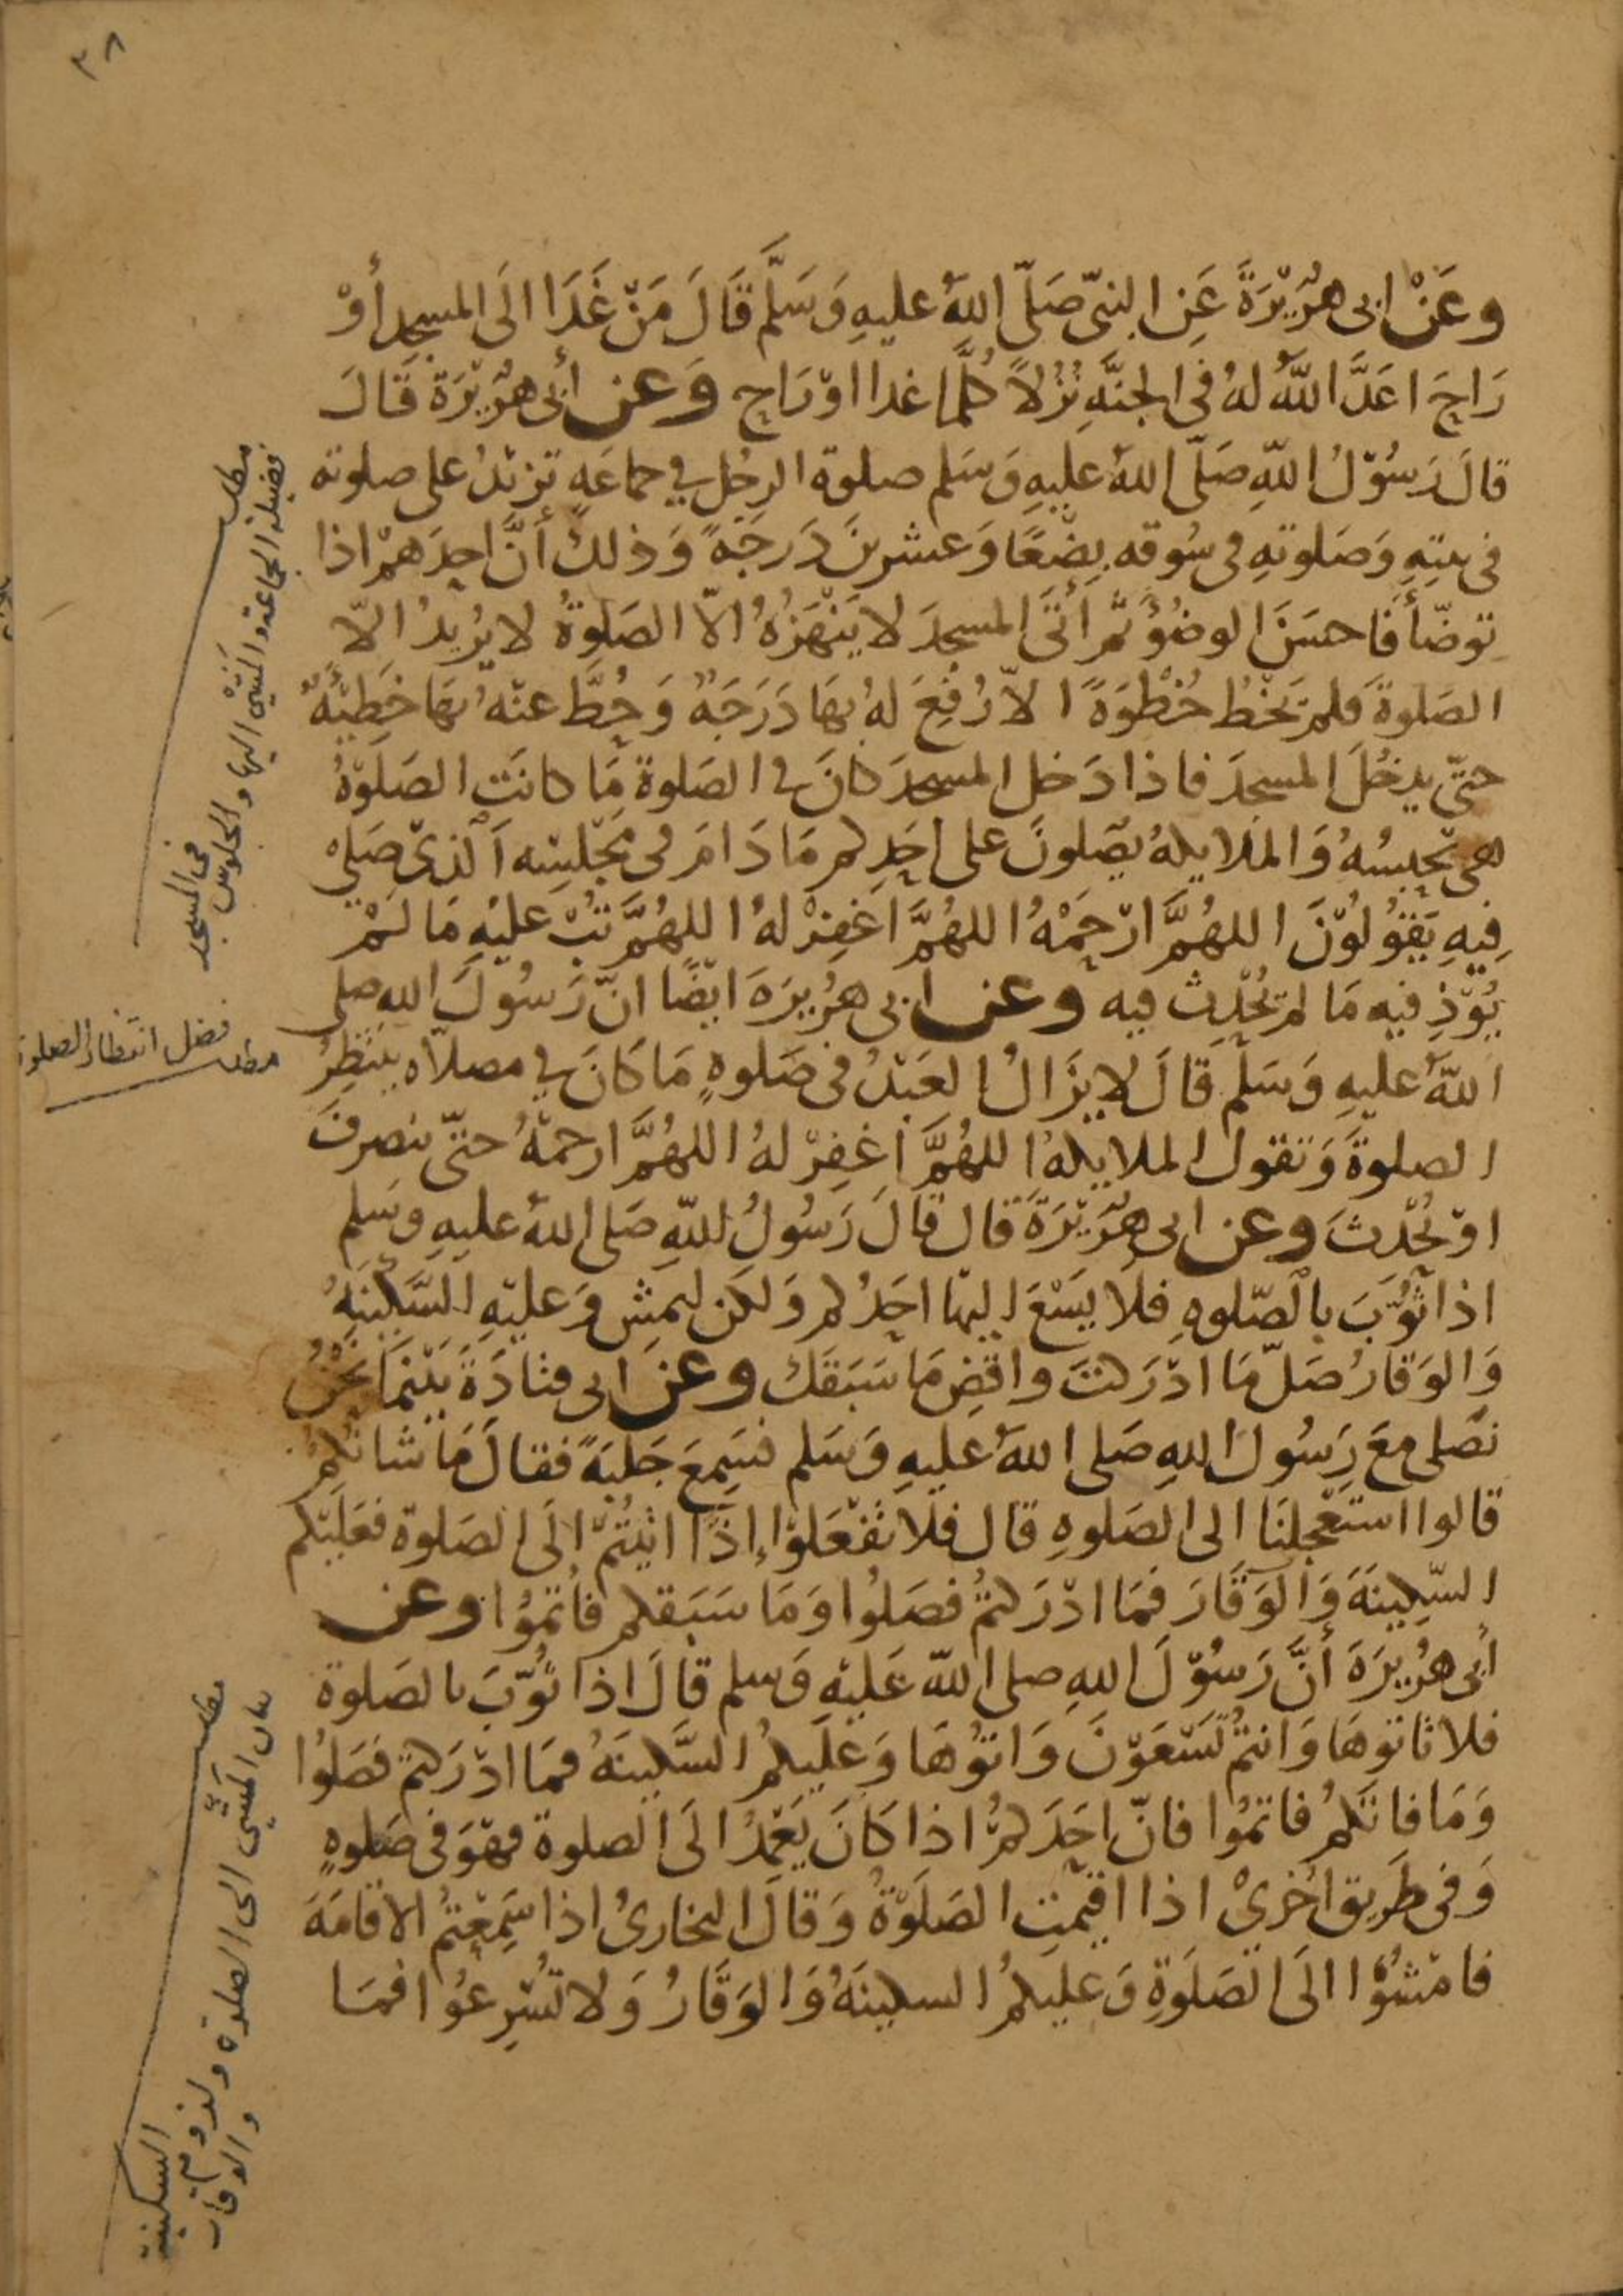 ٣٨
وعَنْ ابى هُرَيْرَةَ عَنِ النبىّ صَلّى اللهُ عليهِ وَسَلَّم قَالَ مَنْ غَدَا الَى المسجدِ أوْ
رَاحَ اعَدَّ اللهُ لهُ فى الجنَّةِ نُزُلاً كُلَّمَا غدا اوْ رَاحَ وَعن أبى هُرَيْرَةَ قَالَ
قالَ رَسُوْلُ اللهِ صَلّى اللهُ عليهِ وَسَلم صلوة الرجُل فى جماعَةٍ تزيْدُ على صلوته
فى بيتِهِ وَصَلوتِهِ فى سُوقه بِضْعًا وَعشرينَ دَرَجَةً وَذلكَ أنَّ احدَهمْ اذا
توضّأ فَاحسَنَ الوضُوءَ ثمّ أتَى المسجدَ لا يَنْهَزُهُ الاّ الصَلوةُ لا يُرِيْدُ الاّ
الصَلوةَ فلم يَخْطُ خُطْوَةً الاّ رُفِعَ لهُ بهَا دَرَجَةٌ وَحُطَّ عنْهُ بهَا خَطِيْئَةٌ
حتّى يدخُلَ المسجدَ فاذا دَخل المسجدَ كانَ فى الصَلوة مَا كانَتِ الصَلوْةُ
هى تحْبِسُهُ وَالمَلايِكةُ يُصَلونَ على احَدِكم مَا دَامَ فى مَجْلِسِه اَلّذِىْ صَلى
فِيهِ يَقُوْلُوْنَ اللهُمَّ ارْحَمْهُ اللهُمَّ اغفِرْ لهُ اللهُمَّ تُبْ عليْهِ مَا لَمْ
يُوْذِ فيْه مَا لم يُحْدِث فيه وعن ابى هُرَيرَة ايْضًا انّ رَسُولَ الله صلى
اللهُ عليهِ وَسَلّم قَالَ لا يَزَالُ العَبْدُ فى صَلوةٍ مَا كَانَ فى مصلاّه ينتَظِرُ
الصلوةَ وَتقول الملايكةُ اللهُمَّ اغفِرْ لهُ اللهُمَّ ارحمْهُ حتّى ينصرفَ
اوْ يُحْدِثَ وعن ابى هُرَيْرَةَ قال قَالَ رَسُولُ اللهِ صَلى اللهُ عليهِ وسَلم
اذا ثُوِّبَ بالصّلوةِ فلا يَسْعَ اليها احَدُكم وَلكن ليمْشِ وَعليْهِ السَّكِيْنَةُ
وَالوَقارُ صَلّ مَا ادْرَكتَ واقضِ مَا سَبَقكَ وعن ابى قتادَةَ بَيْنَمَا نَحْنُ
نصَلى معَ رَسُول اللهِ صَلى اللهُ عليهِ وَسَلم فسَمِعَ جَلبَةً فقالَ مَا شانكُمْ
قالوا استعْجلنَا الى الصَلوةِ قال فلا تفْعَلوْا إذَا اتيْتُمْ الَى الصَلوة فعَليْكم
السّكِينَةَ وَالوَقَارَ فمَا ادْرَكتمُْ فصَلوُا وَمَا سَبَقكم فأتمُوا وعن
أبى هُرَيرَةَ أنَّ رَسُوْلَ اللهِ صلى اللهُ عَليْهِ وَسلم قالَ اذا ثُوّبَ بالصَلوة
فلا تاتوهَا وَانتمُْ تَسْعَوْنَ وَاتوُهَا وَعَليكمُ السَّكينَةُ فمَا ادْرَكتم فصَلوُا
وَمَا فاتكمُْ فاتمُوا فانّ احَدَكمُْ اذا كَانَ يَعْمِدُ الَى الصلوة فهْوَ فى صَلوةٍ
وَفى طَرِيق اُخرَىْ اذا اقيْمَتِ الصَلَوْةُ وَقالَ البخارىُ اذا سَمِعْتمُ الاقامَةَ
فامْشُوْا الَى الصَلَوةِ وَعليكمُ السكينَةُ وَالوَقَارُ وَلا تُسْرِعُوْا فمَا
مطلب
فضيلة الجماعة والمشى اليها والجلوس
فى المسجد
مطلب فضل انتظار الصلوة
مطلب
بيان المشى الى الصلوة ولزوم
السكينة
والوقار